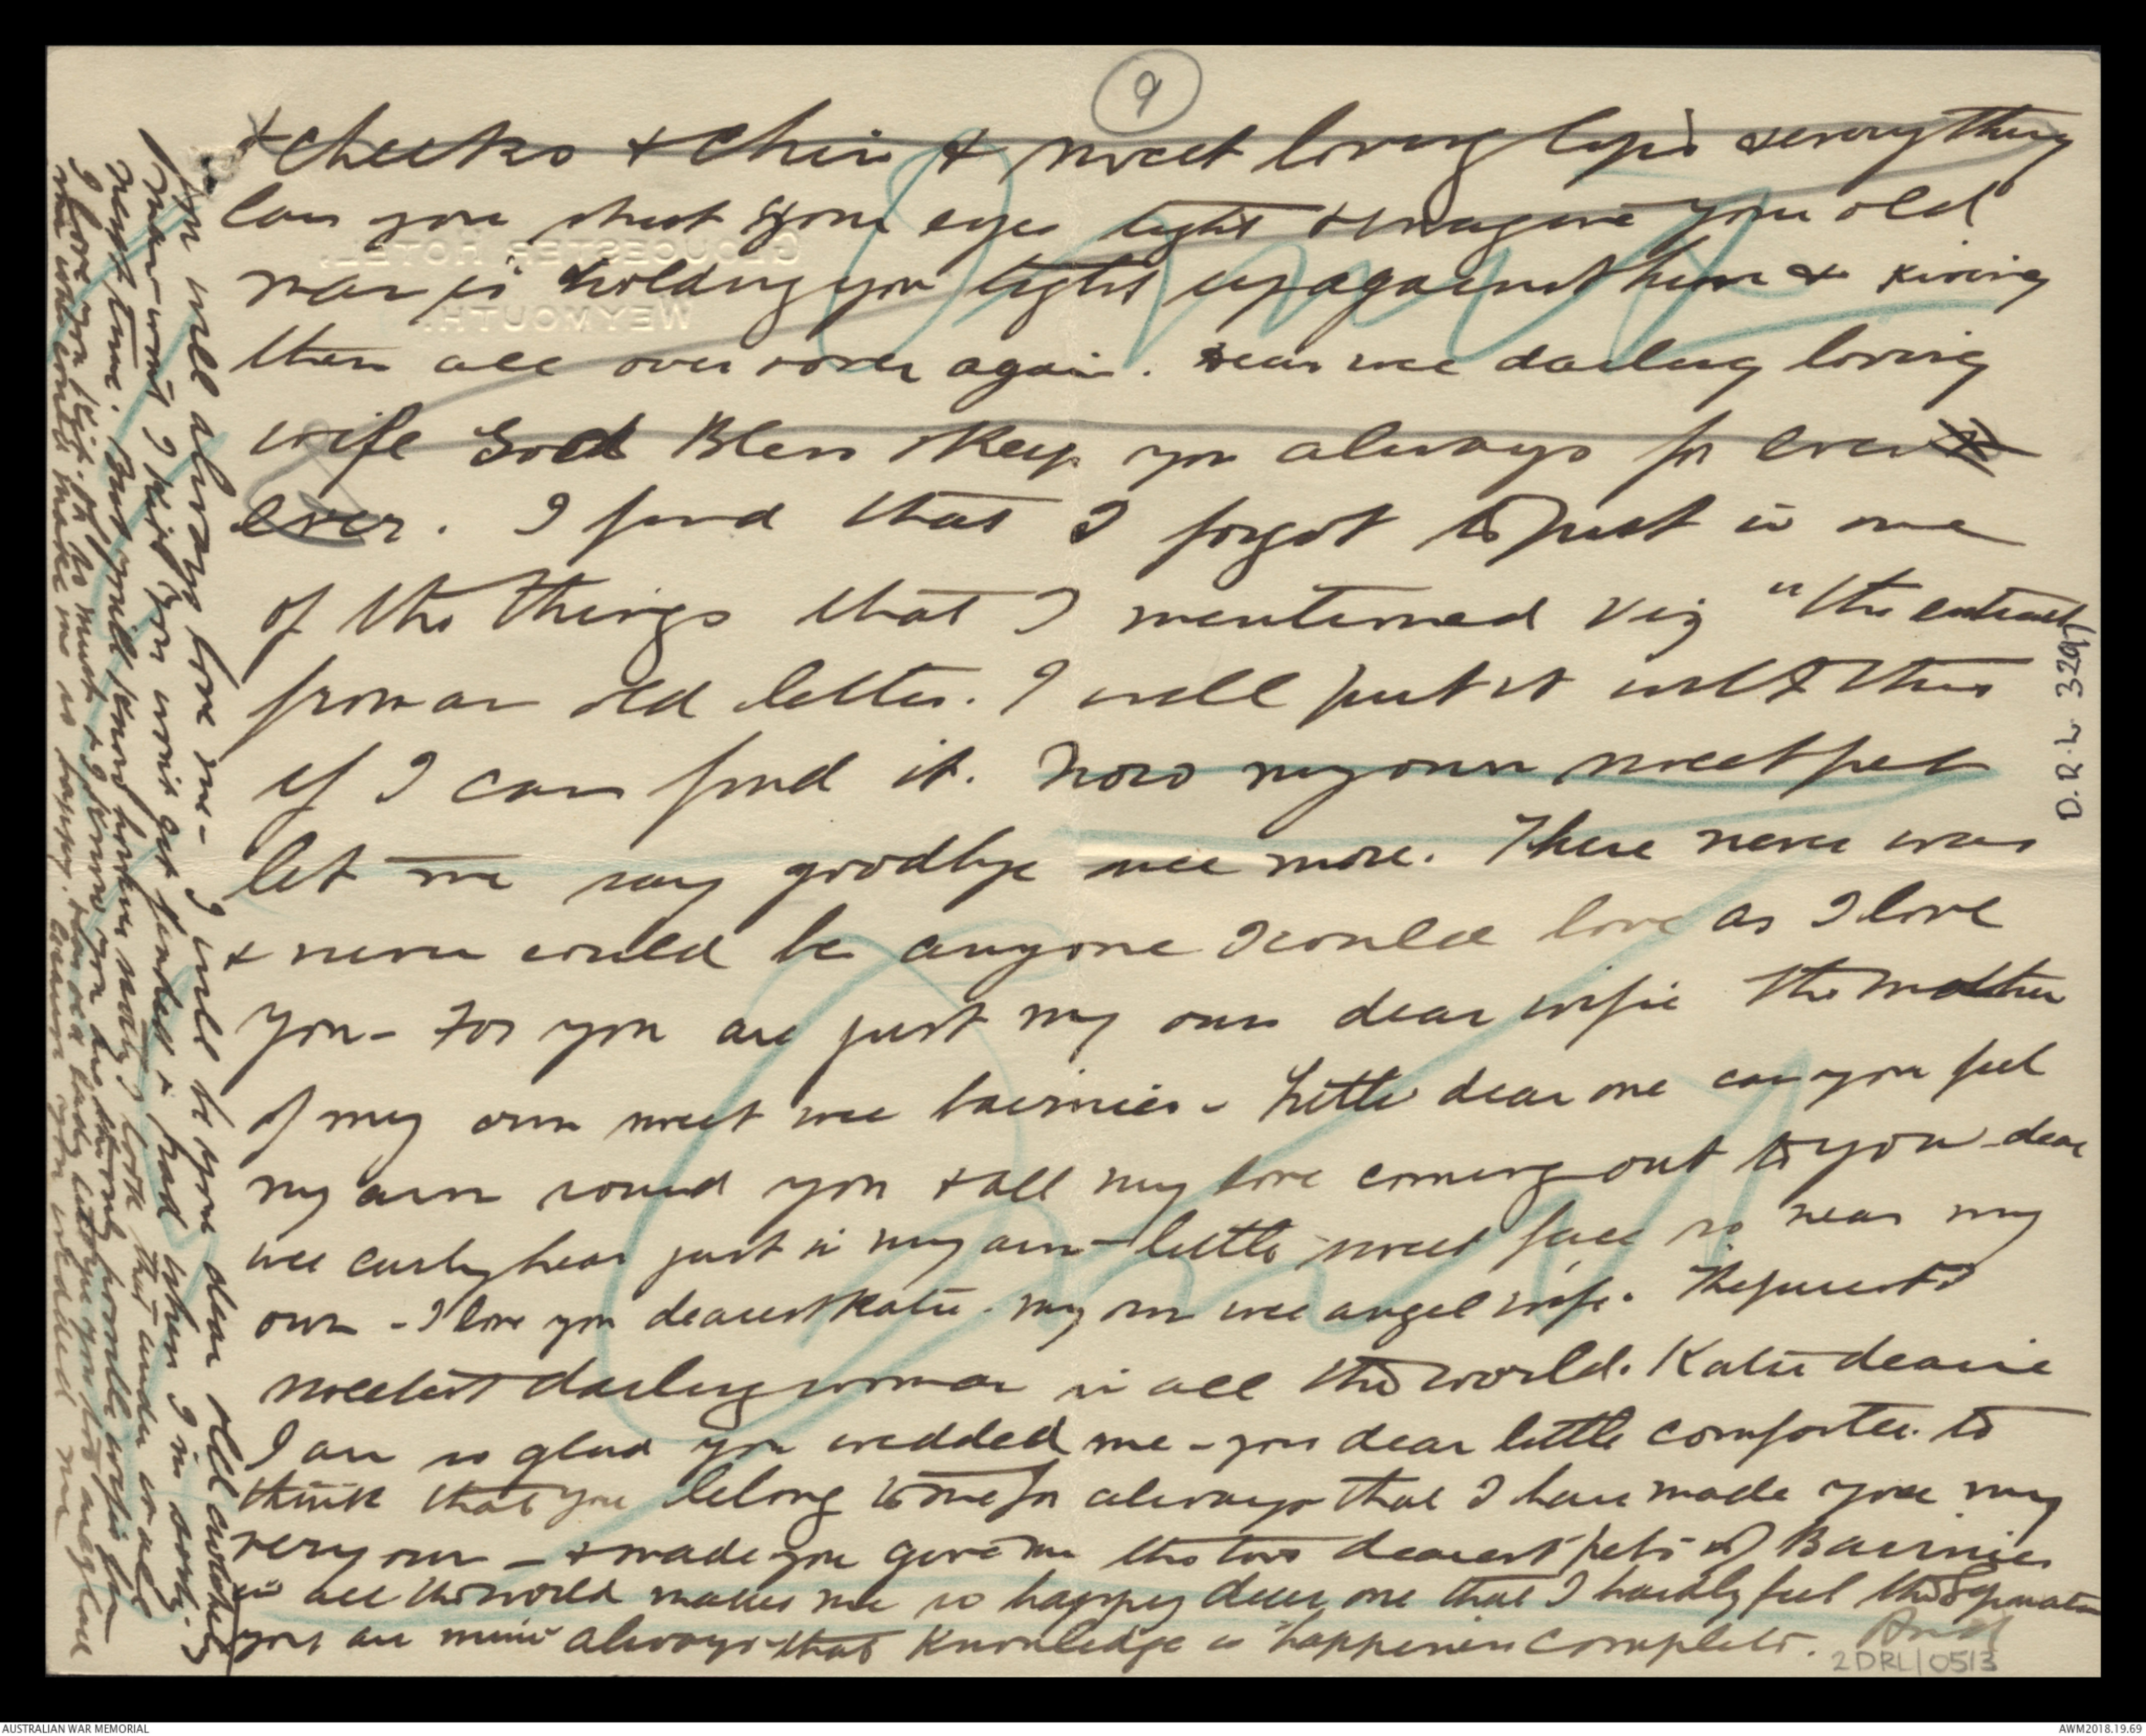 9
& cheeks & chin & sweet loving lips & everything
Can you shut your eyes tight & imagine your old
man is holding you tight up against him & kissing
them all over & over again. Dear wee darling loving
wife God Bless & Keep you always for ever &
ever. I find that I forgot to put in one
of the things that I mentioned viz "the extract
from an old letter. I will put it with this
if I can find it. Now my own sweet pet
let me say goodbye once more. There never was
& never could be anyone I could love as I love
you - For you are just my own dear wifie the mother
of my own sweet wee bairnies - Little dear one can you feel
my arm round you & all my love coming out to you - dear
wee curly head just in my arm - little sweet face so near my
own - I love you dearest Katie - my own wee angel wife. The purest &
sweetest darling woman in all the world. Katie dearie
I am so glad you wedded me - you dear little comforter. to
think that you belong to me for always that I have made you my
very own - & made you give me the two dearest pets of Bairnies
in all the world makes me so happy dear one that I hardly feel the separation
you are mine always & that knowledge is happiness complete. And
you will always love me - I will be your dear old
man wont I & you wont get & sad when I'm
next time. But you'll know however I look that under it all
I love you to much & I know you are the only possible wifie
who could make me so happy. Dear old lady
you wedded me
GLOUCESTER HOTEL,
WEYMOUTH.
D.R.L 3297
2DRL/0513
AUSTRALIAN WAR MEMORIAL
AWM2018.19.69